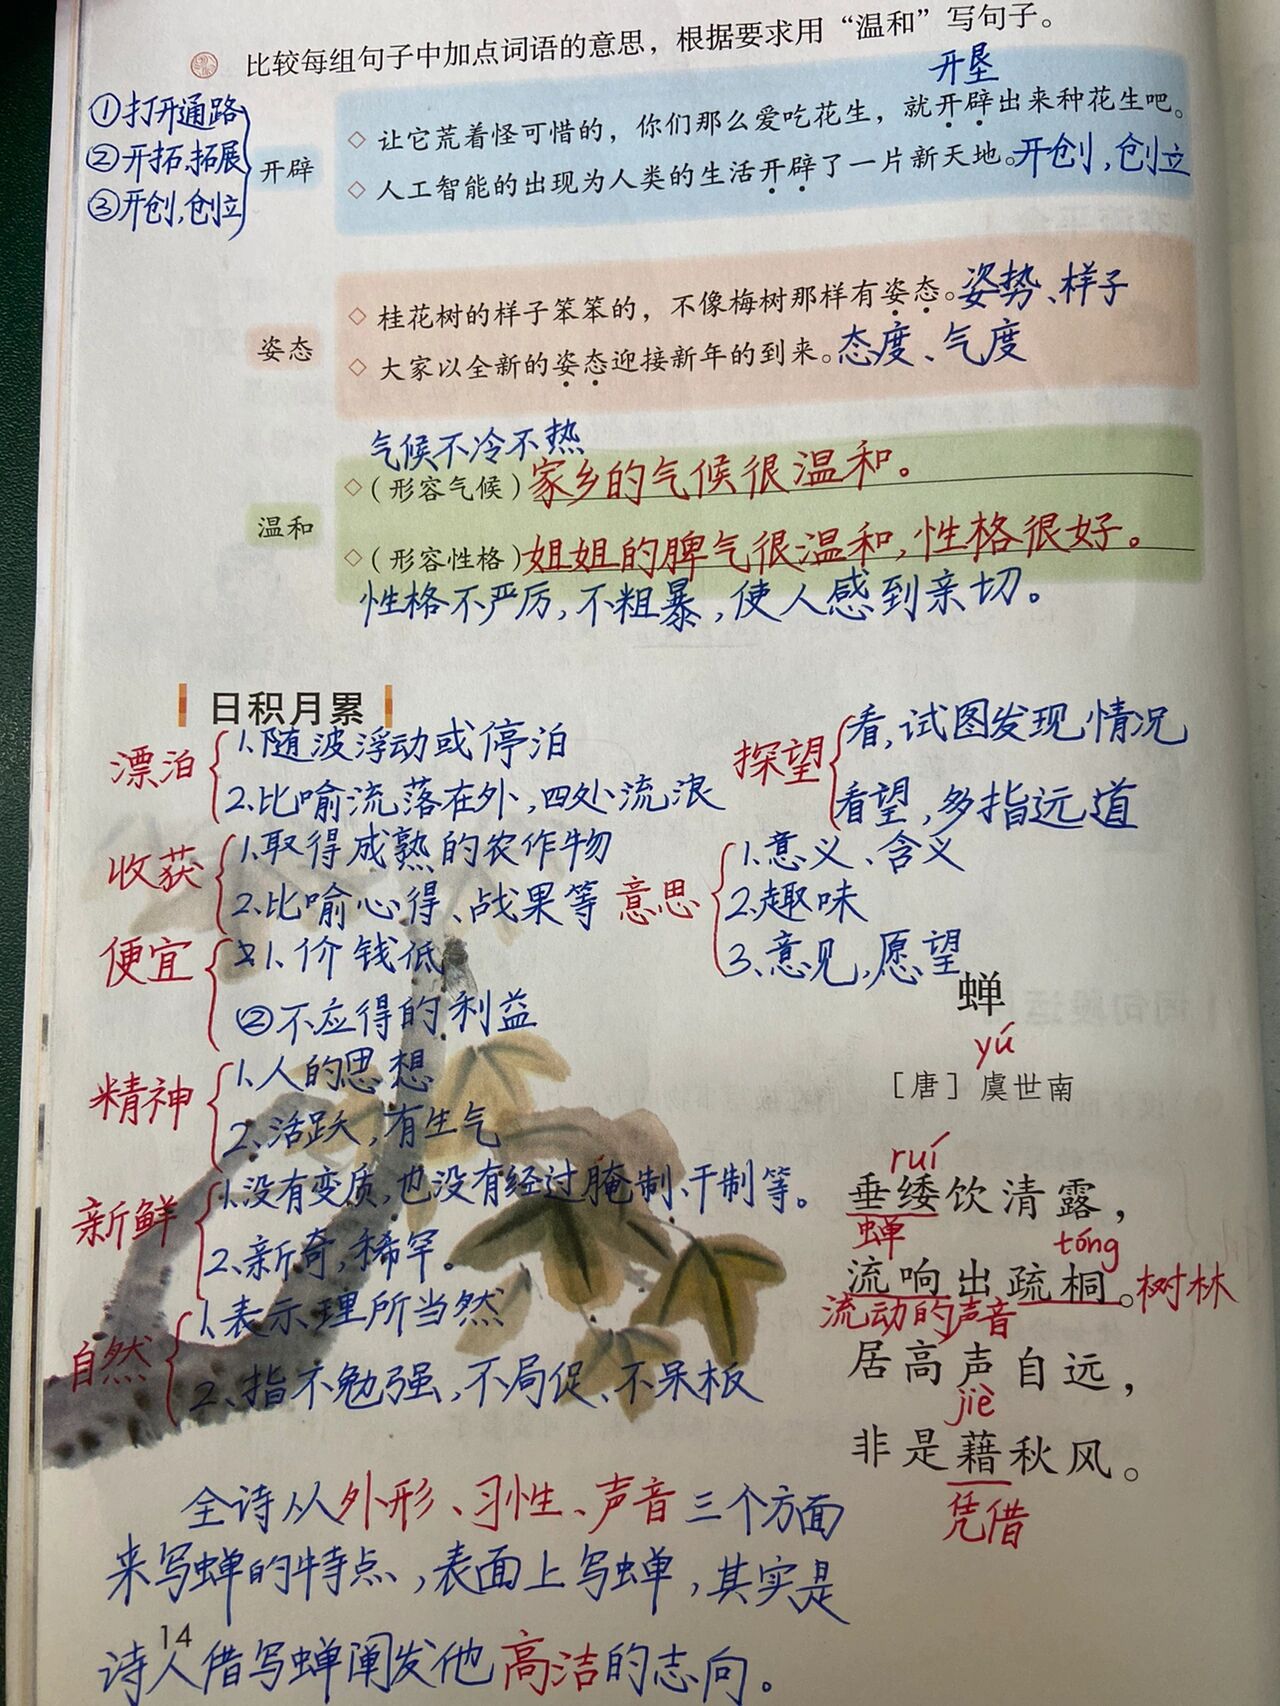 比较每组句子中加点词语的意思，根据要求用“温和”写句子。
开垦
①打开通路
②开拓、拓展
③开创，创立
开辟
◇ 让它荒着怪可惜的，你们那么爱吃花生，就开辟出来种花生吧。
◇ 人工智能的出现为人类的生活开辟了一片新天地。开创，创立
姿态
◇ 桂花树的样子笨笨的，不像梅树那样有姿态。姿势、样子
◇ 大家以全新的姿态迎接新年的到来。态度、气度
气候不冷不热
温和
◇（形容气候）家乡的气候很温和。
◇（形容性格）姐姐的脾气很温和，性格很好。
性格不严厉，不粗暴，使人感到亲切。
日积月累
漂泊
1、随波浮动或停泊
2、比喻流落在外，四处流浪
探望
看，试图发现情况
看望，多指远道
收获
1、取得成熟的农作物
2、比喻心得、战果等
意思
1、意义、含义
2、趣味
3、意见，愿望
便宜
1、价钱低
②不应得的利益
精神
1、人的思想
2、活跃，有生气
新鲜
1、没有变质，也没有经过腌制、干制等。
2、新奇，稀罕。
自然
1、表示理所当然
2、指不勉强，不局促、不呆板
蝉
yú
［唐］虞世南
ruí
垂緌饮清露，
蝉
tóng
流响出疏桐。树林
流动的声音
居高声自远，
jiè
非是藉秋风。
凭借
全诗从外形、习性、声音三个方面
来写蝉的特点，表面上写蝉，其实是
诗人借写蝉阐发他高洁的志向。
14